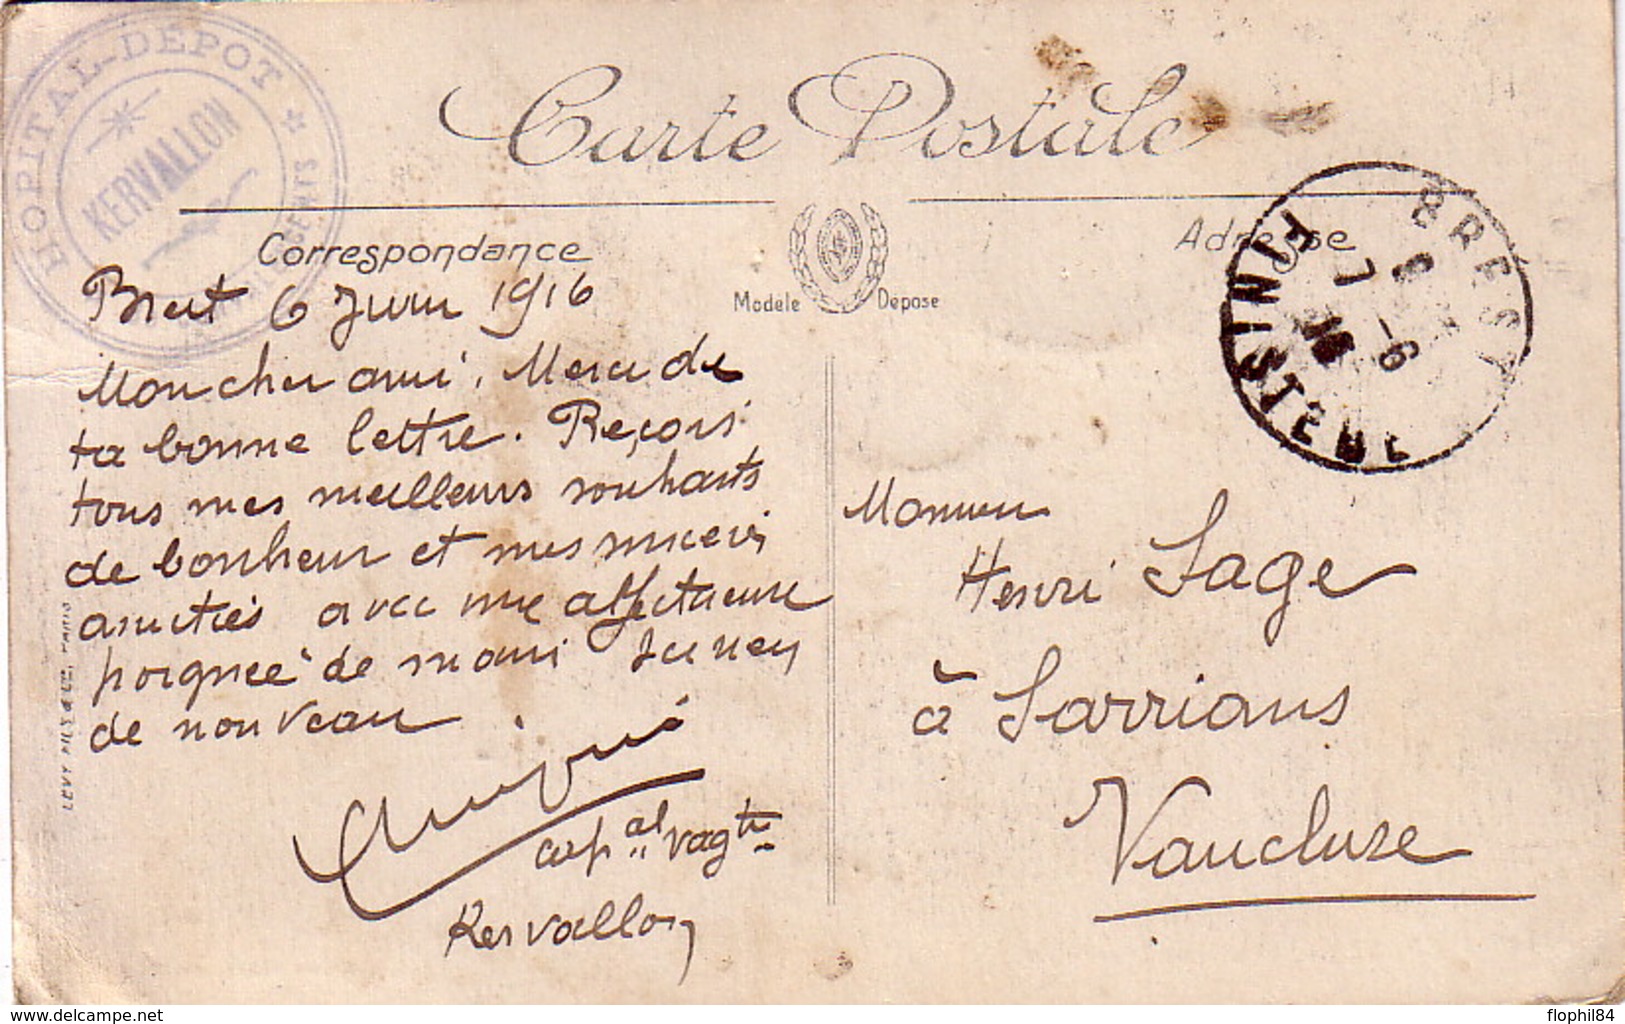 HOPITAL-DÉPOT ★
KERVALLON
Carte Postale
Correspondance
Adresse
Modèle Déposé
BREST
FINISTERE
7 -6
16
Brest 6 Juin 1916
Mon cher ami, Merci de
ta bonne lettre. Reçois
tous mes meilleurs souhaits
de bonheur et mes sincères
amitiés avec une affectueuse
poignée de main
de nouveau
cap.al vag.tre
Kervallon
Monsieur
Henri Sage
à Sarrians
Vaucluse
delcampe.net
flophil84